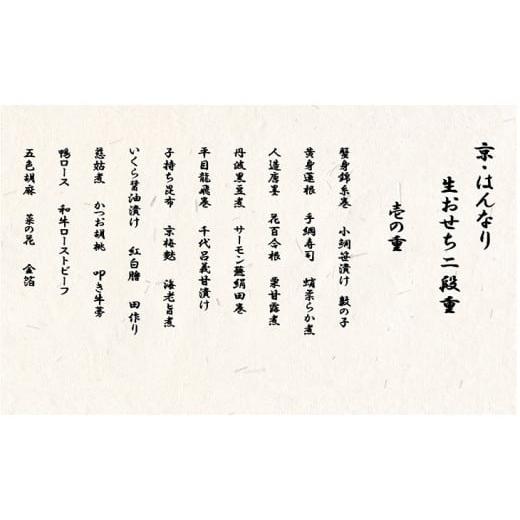 京・はんなり
生おせち二段重
壱の重
蟹身錦糸巻 小鯛笹漬け 数の子
黄身蓮根 手綱寿司 蛸柔らか煮
人造唐墨 花百合根 栗甘露煮
丹波黒豆煮 サーモン蕪絹田巻
平目龍飛巻 千代呂義甘漬け
子持ち昆布 京梅麩 海老旨煮
いくら醤油漬け 紅白膾 田作り
慈姑煮 かつお胡桃 叩き牛蒡
鴨ロース 和牛ローストビーフ
五色胡麻 菜の花 金箔